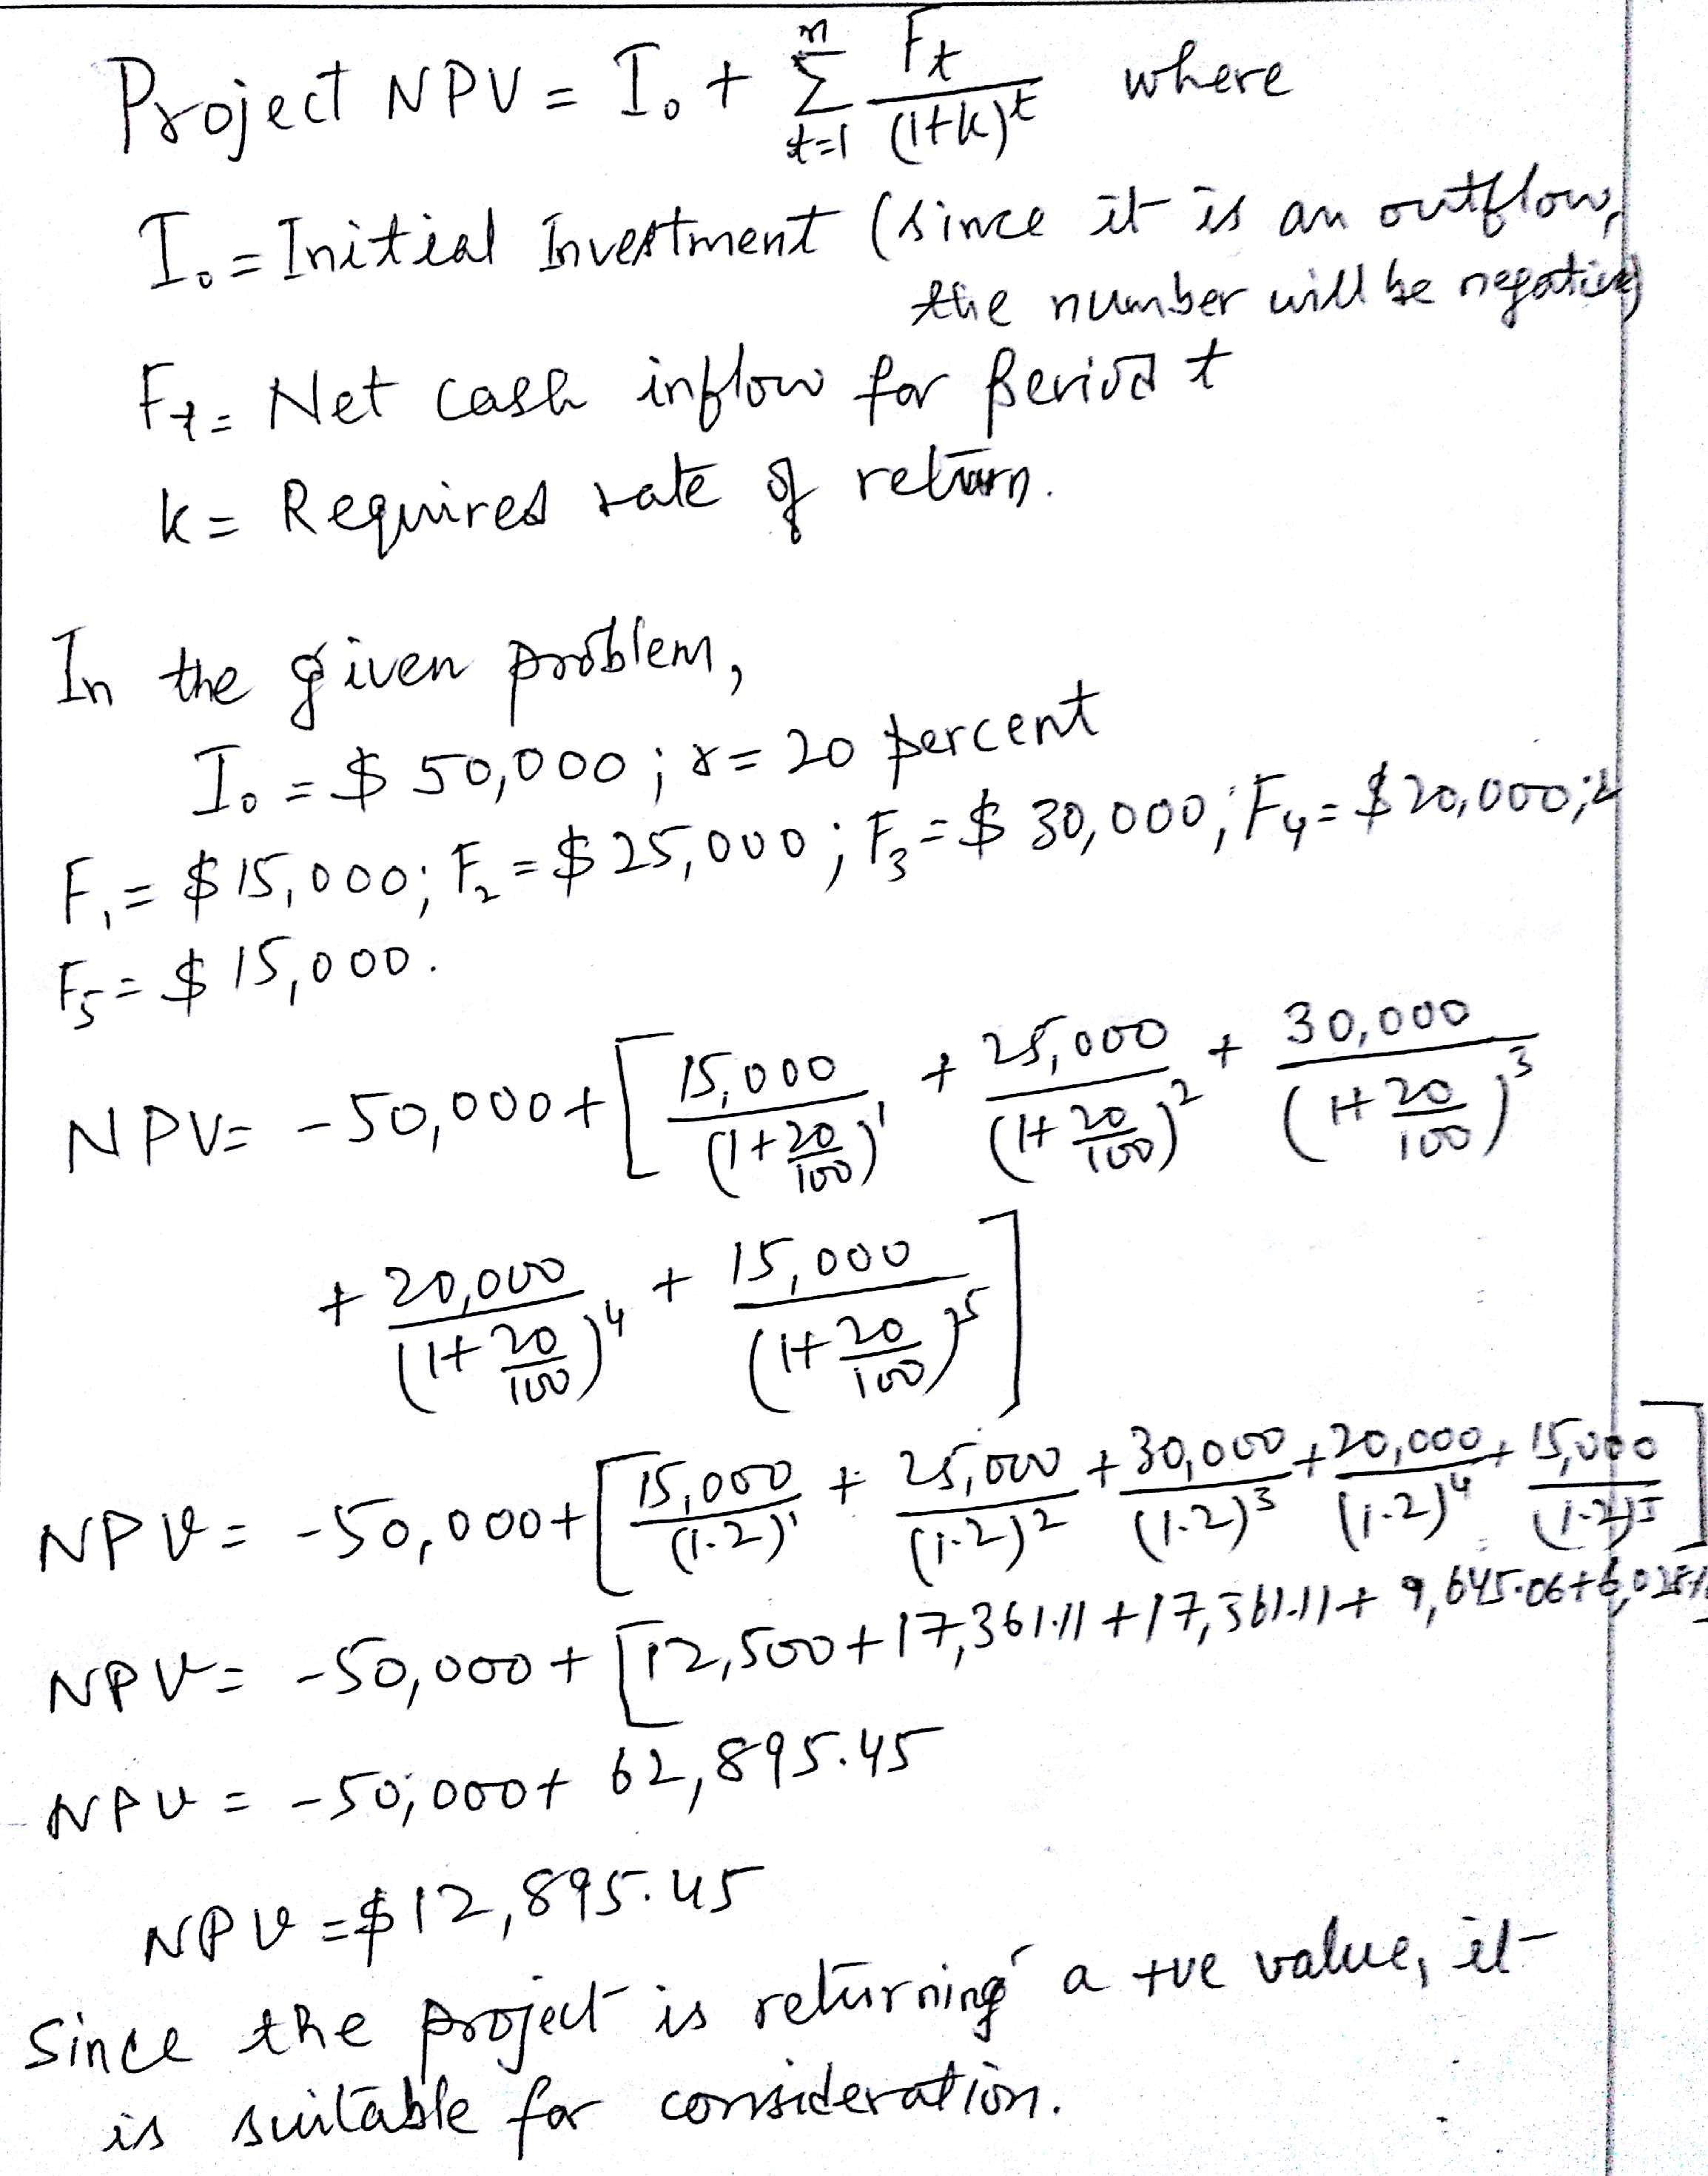 Project NPV = I₀ + Σ_{t=1}^{n} F_t/(1+k)^t where
I₀ = Initial Investment (since it is an outflow,
the number will be negative)
F_t = Net cash inflow for period t
k = Required rate of return.
In the given problem,
I₀ = $ 50,000 ; r = 20 percent
F₁ = $15,000; F₂ = $25,000 ; F₃ = $ 30,000; F₄ = $20,000;
F₅ = $ 15,000.
NPV = -50,000 + [ 15,000/(1+20/100)^1 + 25,000/(1+20/100)^2 + 30,000/(1+20/100)^3
+ 20,000/(1+20/100)^4 + 15,000/(1+20/100)^5 ]
NPV = -50,000 + [ 15,000/(1.2)^1 + 25,000/(1.2)^2 + 30,000/(1.2)^3 + 20,000/(1.2)^4 + 15,000/(1.2)^5 ]
NPV = -50,000 + [12,500 + 17,361.11 + 17,361.11 + 9,645.06 +
NPV = -50,000 + 62,895.45
NPV = $12,895.45
Since the project is returning a +ve value, it
is suitable for consideration.